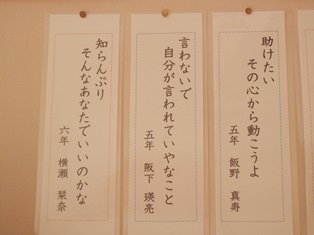 助けたい
その心から動こうよ
五年 飯野 真寿
言わないで
自分が言われていやなこと
五年 阪下 瑛亮
知らんぷり
そんなあなたでいいのかな
六年 横瀬 栞奈